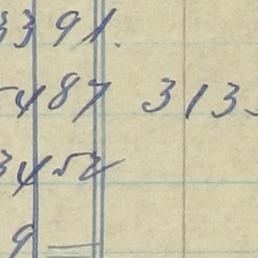 3391.
5487 313
3452
9